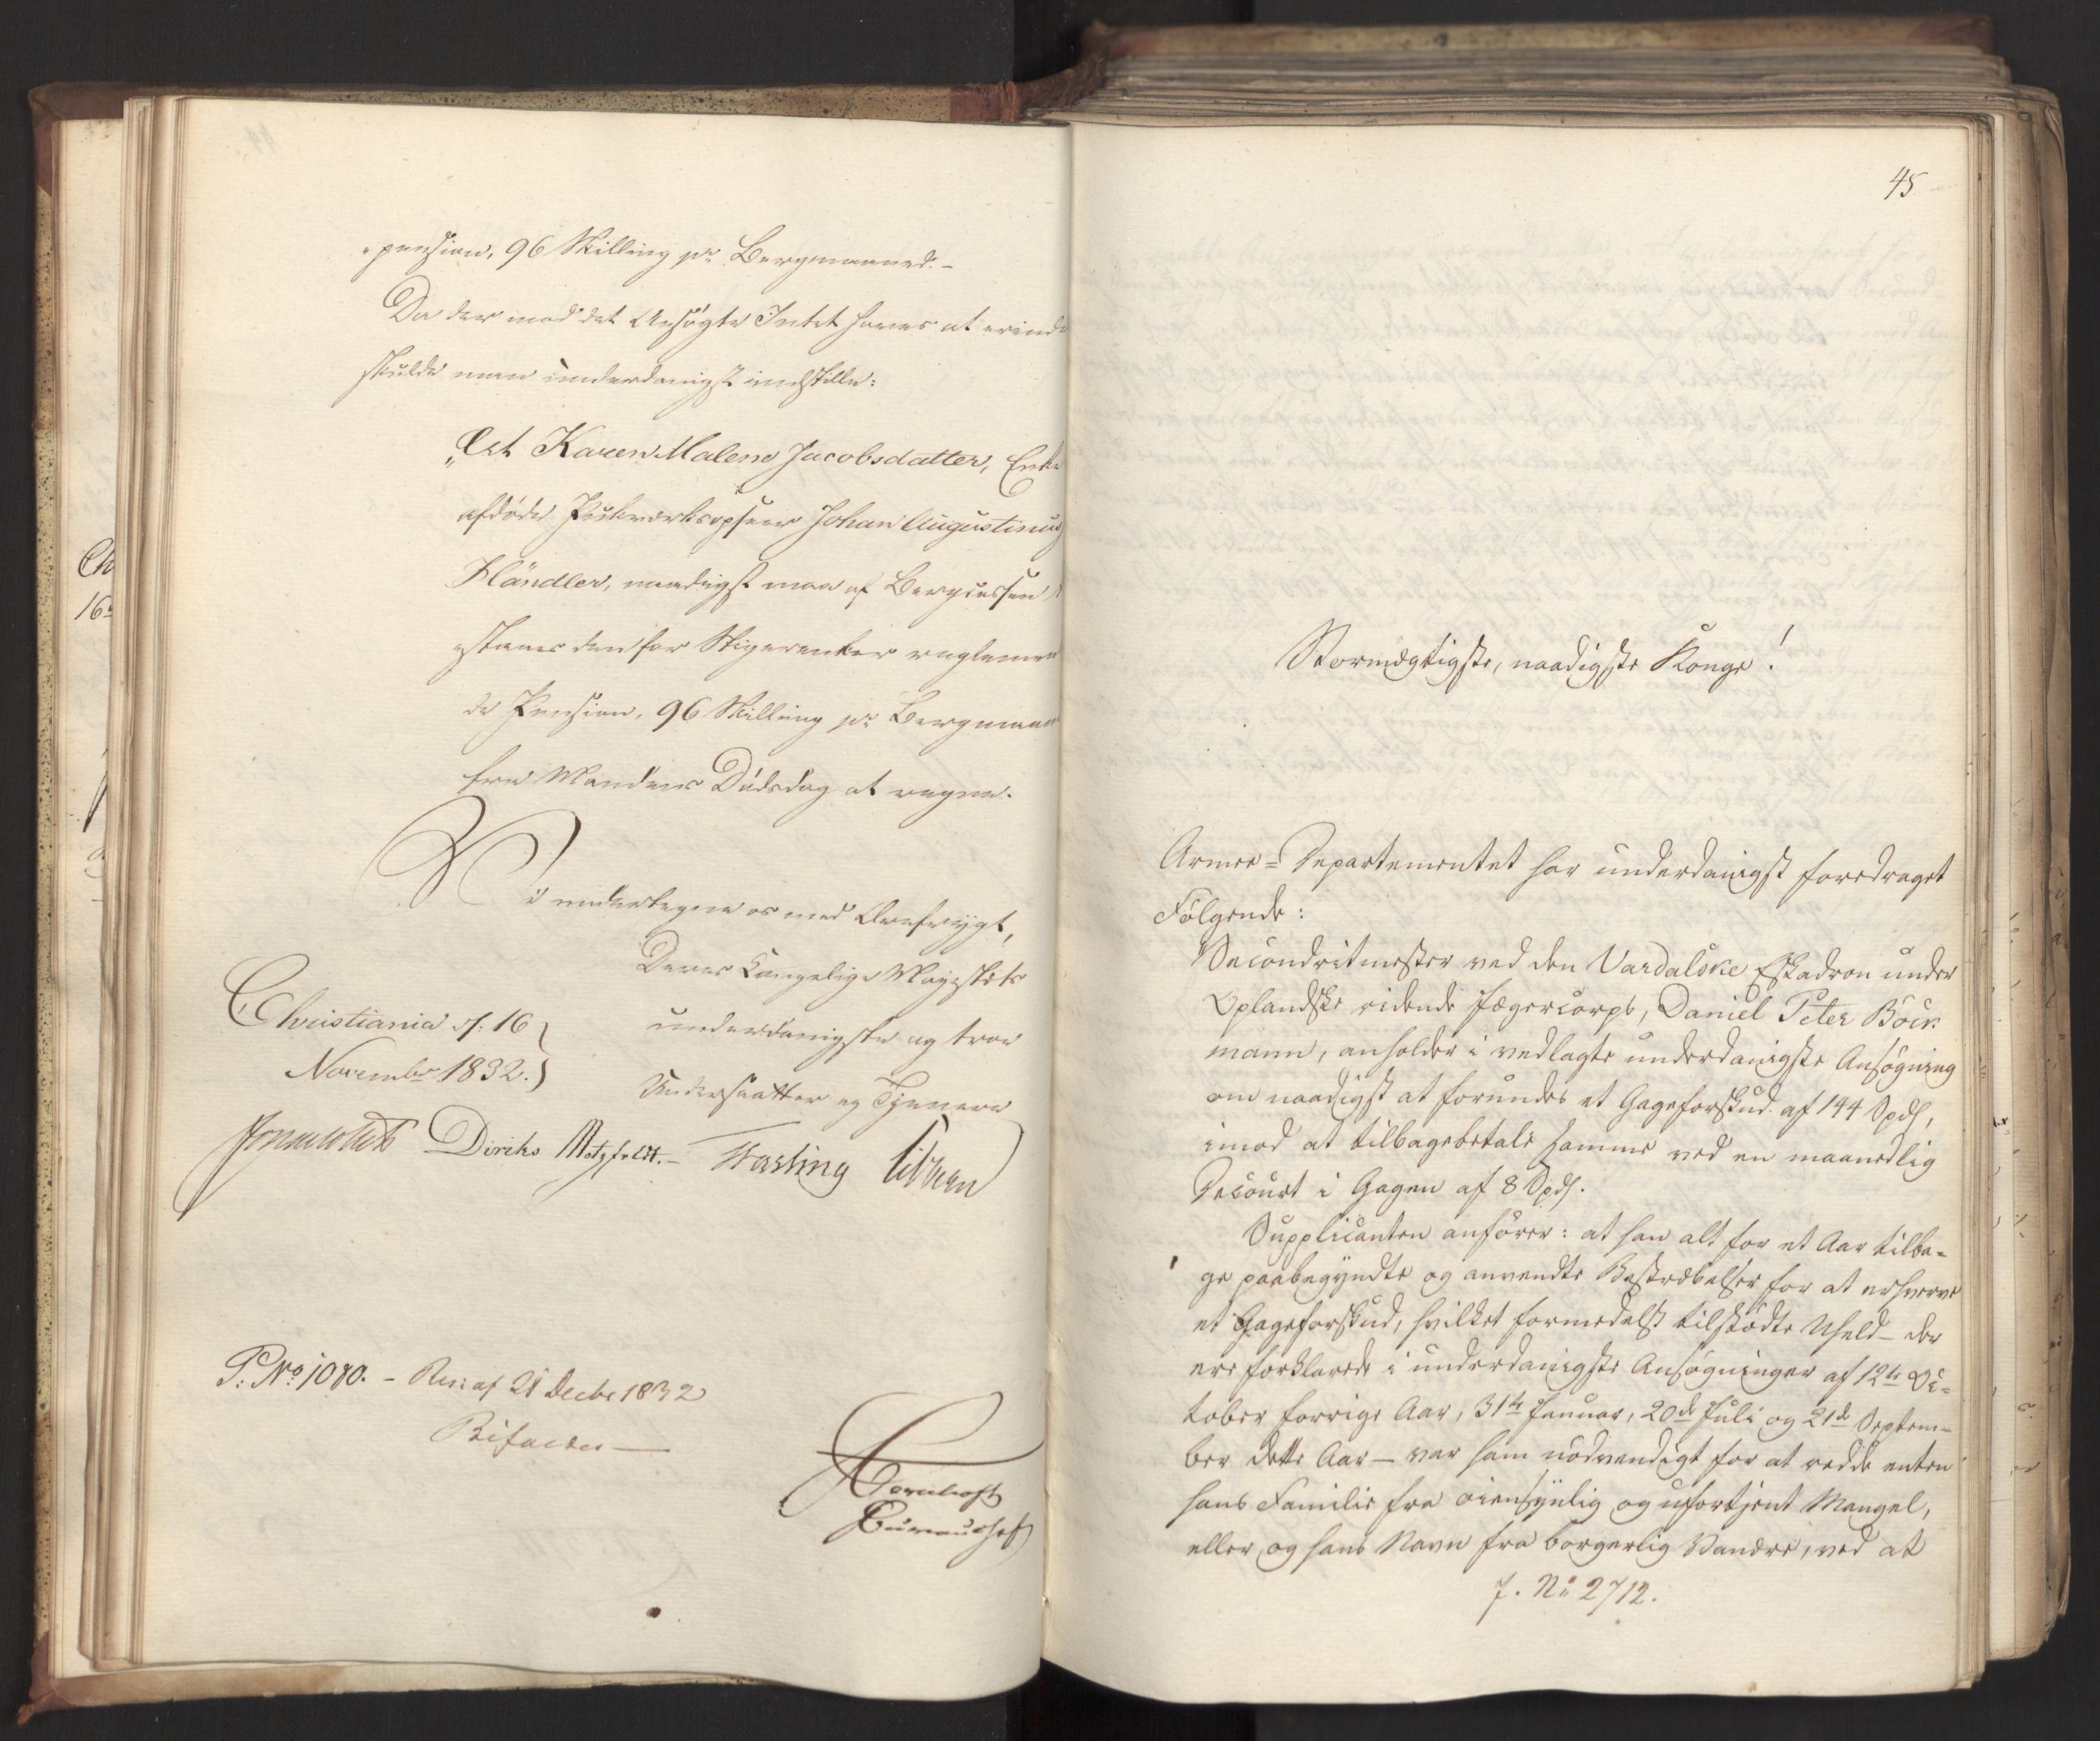 "pension, 96 Skilling pr Bergmaaned. –
Da der mod det Ansøgte Intet haves at erind
skulde man underdanigst indstille:
„At Karen Malene Jacobsdatter, Enke
afdøde Pukværksopseer Johan Augustinus
Händler, naadigst maa af Bergcassen
staaes den for Stigerenker reglemen
de Pension, 96 Skilling pr Bergmaan
fra Mandens Dødsdag at regne.
Vi undertegne os med Ærefrygt,
Deres Kongelige Majestets
Christiania d: 16
underdanigste og troe
November 1832.
Undersaatter og Tjenere
Diriks Motzfeldt. – Fasting Vibhen
P: No 1080. – Res: af 21 Decbr 1832
Bifaldes —
Bureauchef
45
Stormægtigste, naadigste Konge!
Armee=Departementet har underdanigst foredraget
Følgende:
Secondritmester ved den Vardalske Eskadron under
Oplandske ridende Jægercorps, Daniel Peter Böck
mann, anholder i vedlagte underdanigste Ansøgning
om naadigst at forundes et Gageforskud af 144 Spd,
imod at tilbagebetale samme ved en maanedlig
Decourt i Gagen af 8 Spd.
Supplicanten anfører: at han alt for et Aar tilba-
ge paabegyndte og anvendte Bestræbelser for at erhverve
et Gageforskud, hvilket formedelst tilstødte Uheld – der
ere forklarede i underdanigste Ansøgninger af 12te Oc-
tober forrige Aar, 31te Januar, 20de Juli og 21de Septem-
ber dette Aar – var ham nødvendigt for at redde enten
hans Familie fra øiensynlig og ufortjent Mangel,
eller og hans Navn fra borgerlig Vanære, ved at
J. No 2712.